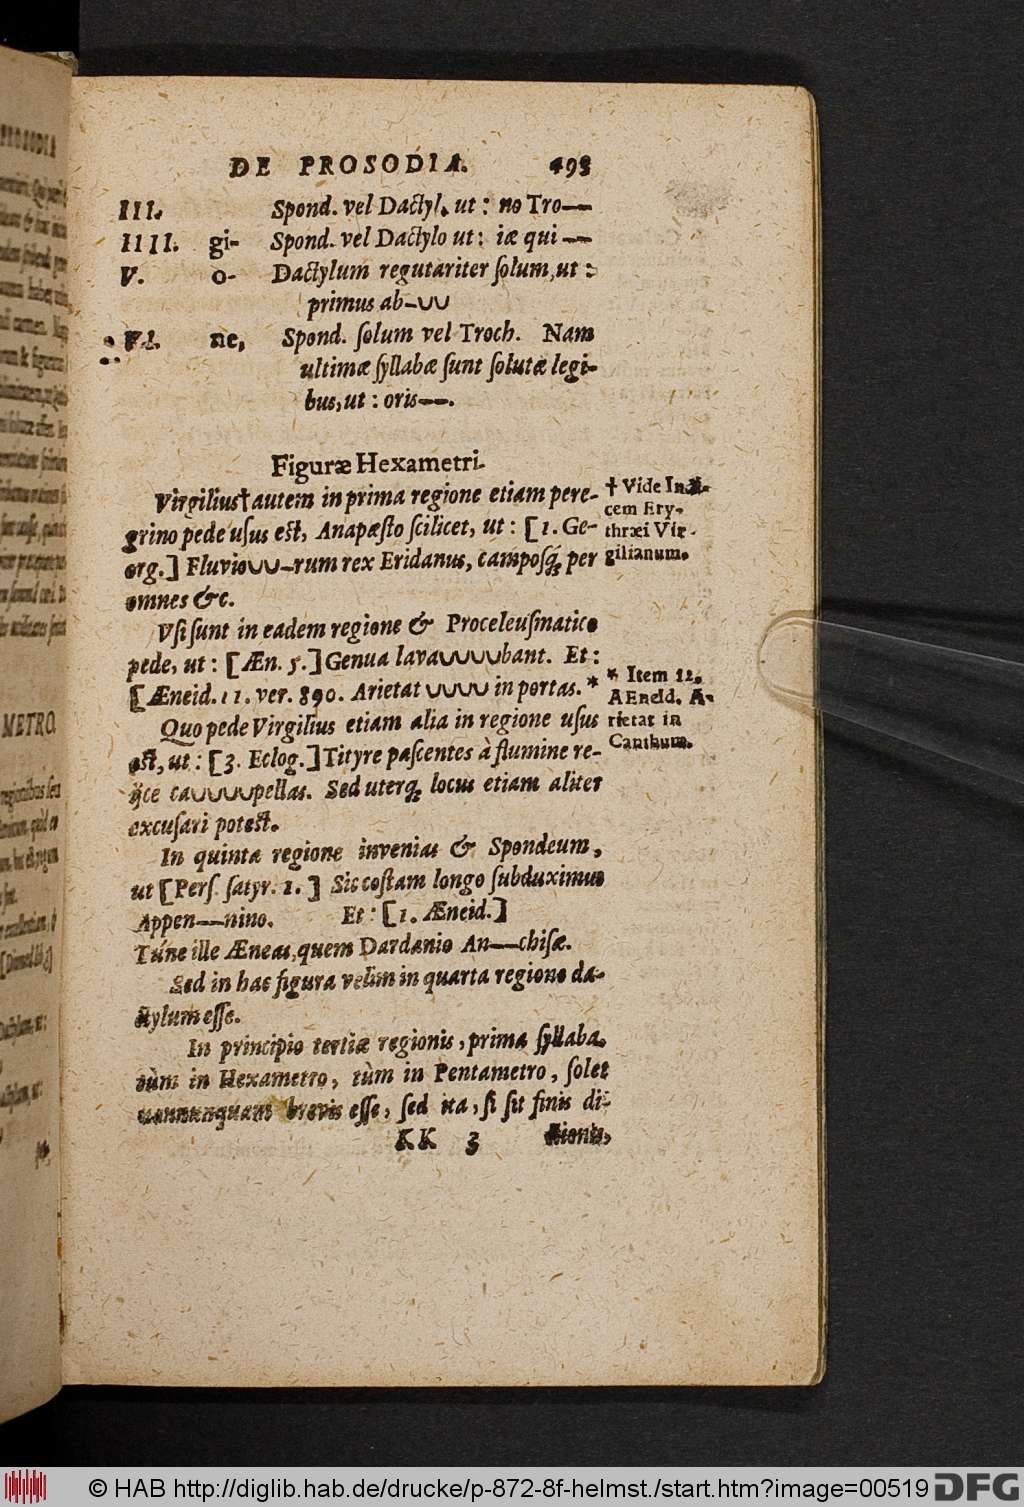 DE PROSODIA. 493
III. Spond. vel Dactyl. ut: no Tro——
IIII. gi- Spond. vel Dactylo ut: iæ qui——
V. o- Dactylum regutariter ſolum, ut:
primus ab-∪∪
VI. ne, Spond. ſolum vel Troch. Nam
ultimæ ſyllabæ ſunt ſolutæ legi-
bus, ut: oris——.
Figuræ Hexametri.
Virgilius† autem in prima regione etiam pere-
grino pede uſus eſt, Anapæſto ſcilicet, ut: [1. Ge-
org.] Fluvio∪∪-rum rex Eridanus, campoſq́; per
omnes &c.
† Vide Indi-
cem Ery-
thræi Vir-
gilianum.
Vſi ſunt in eadem regione & Proceleuſmatico
pede, ut: [Æn. 5.] Genua lava∪∪∪∪bant. Et:
[Æneid. 11. ver. 890. Arietat ∪∪∪∪ in portas.*
* Item 12.
AEneid. A-
rietat in
Canthum.
Quo pede Virgilius etiam alia in regione uſus
eſt, ut: [3. Eclog.] Tityre paſcentes à flumine re-
ijce ca∪∪∪∪pellas. Sed uterq; locus etiam aliter
excuſari poteſt.
In quinta regione invenias & Spondeum,
ut [Perſ. ſatyr. 1.] Sic coſtam longo ſubduximus
Appen——nino. Et: [1. Æneid.]
Túne ille Æneas, quem Dardanio An——chiſæ.
Sed in hac figura velim in quarta regione da-
ctylum eſſe.
In principio tertiæ regionis, prima ſyllaba,
tùm in Hexametro, tùm in Pentametro, ſolet
nonnunquam brevis eſſe, ſed ita, ſi ſit finis di-
KK 3 ctionis,
PROSODIA
METRO.
© HAB http://diglib.hab.de/drucke/p-872-8f-helmst./start.htm?image=00519 DFG